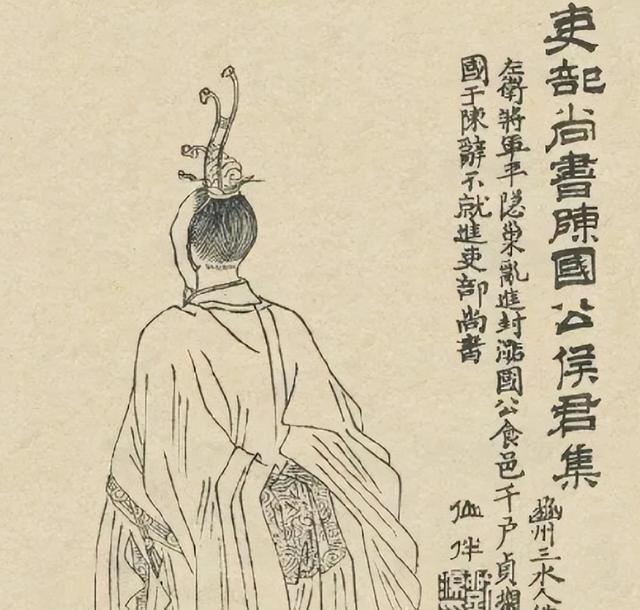 吏部尚書陳國公侯君集
豳州三水人
左衛將軍平隱巢亂進封潞國公食邑千戶貞觀
國于陳辭不就進吏部尚書
仙伴